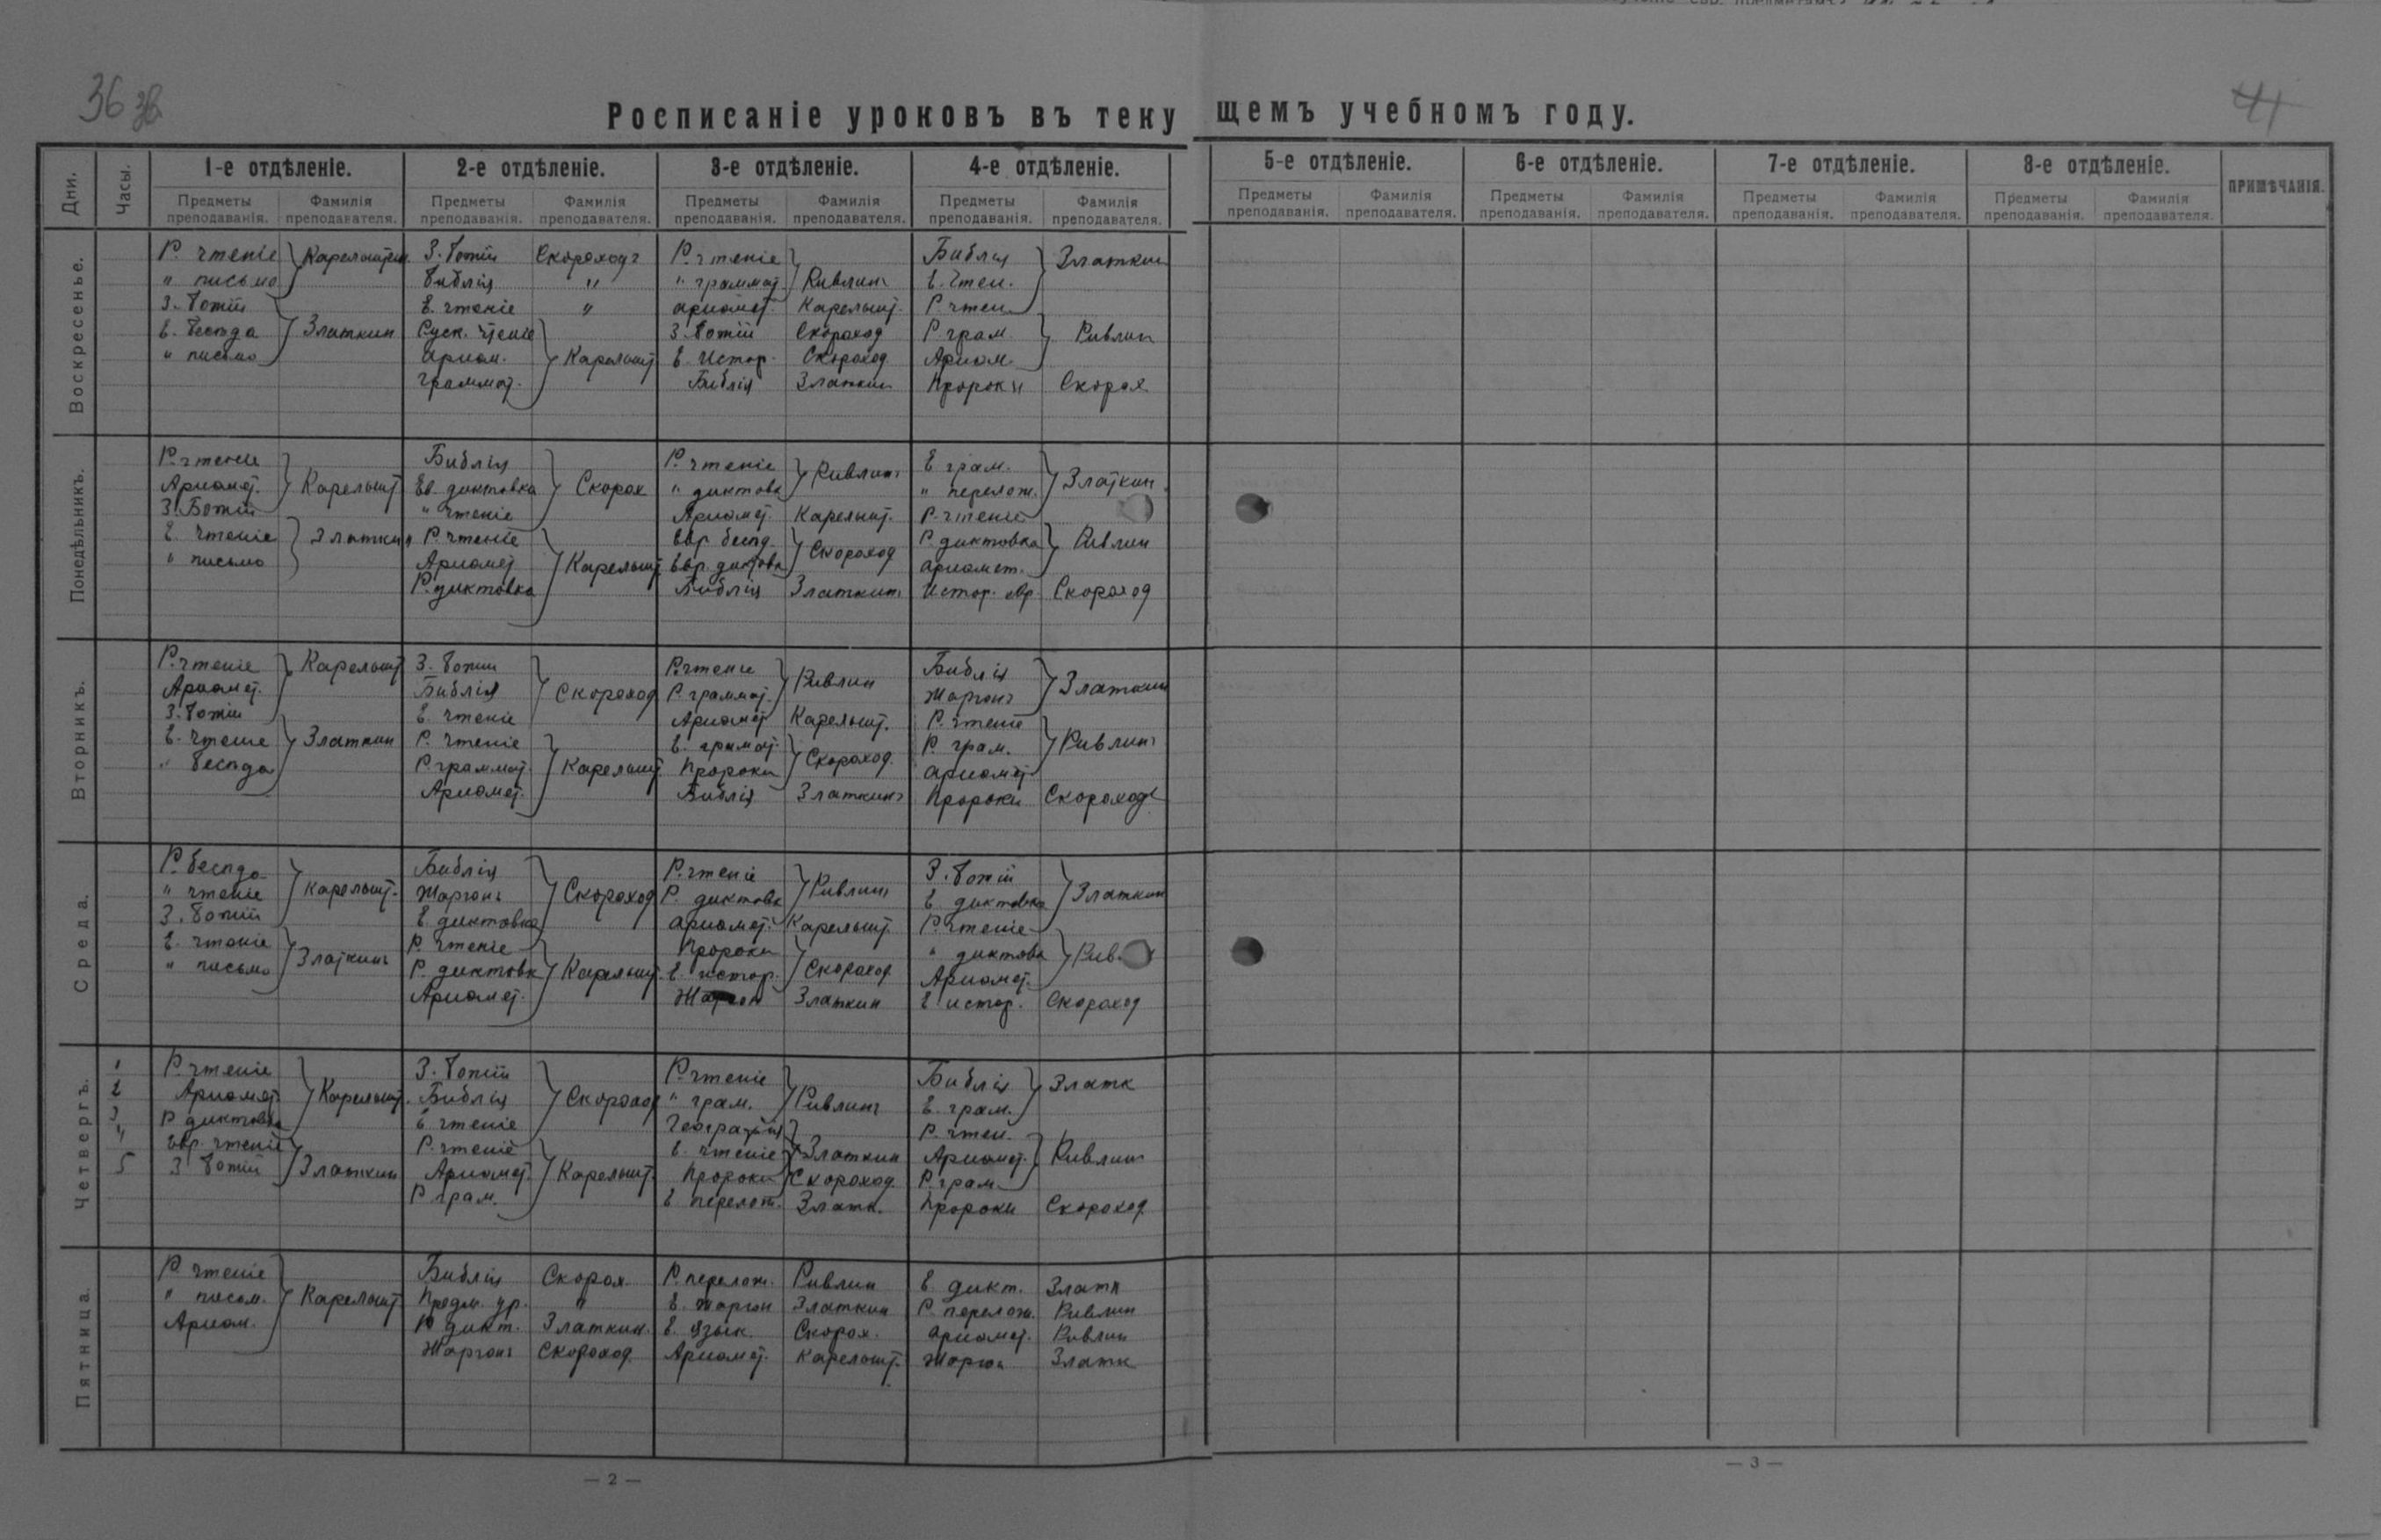 36
41
Росписаніе уроковъ въ теку щемъ учебномъ году.
Дни. Часы. 1-е отдѣленіе. 2-е отдѣленіе. 3-е отдѣленіе. 4-е отдѣленіе. 5-е отдѣленіе. 6-е отдѣленіе. 7-е отдѣленіе. 8-е отдѣленіе. ПРИМѢЧАНІЯ.
Предметы Фамилія Предметы Фамилія Предметы Фамилія Предметы Фамилія Предметы Фамилія Предметы Фамилія Предметы Фамилія Предметы Фамилія
преподаванія. преподавателя. преподаванія. преподавателя. преподаванія. преподавателя. преподаванія. преподавателя. преподаванія. преподавателя. преподаванія. преподавателя. преподаванія. преподавателя. преподаванія. преподавателя.
Воскресенье.
Р. чтеніе Карельштейн З. Божій Скороходъ Р. чтеніе Библія Златкин
" письмо Библія " " граммат Ривлинъ Е. Чтен.
З. Божій Е. чтеніе " ариѳмет. Карельшт. Р. чтен
Е. бесѣда Златкин Руск. Чтеніе З. Божій Скороход Р. грам. Ривлин
" письмо ариѳм. Карельшт Е. Истор. Скороход Ариѳм.
граммат. Библія Златкин Пророки Скорох
Понедѣльникъ.
Р. чтеніе Библія Р. чтеніе Ривлинъ Е грам. Златкин
Ариѳмет. Карельшт Ев. диктовка Скорох " диктовк " перелож.
З. Божій " чтеніе Ариѳмет. Карельшт. Р. чтеніе
Е. Чтеніе Златкин Р. чтеніе Евр. бесѣд. Скороход Р. диктовка Ривлин
" письмо Ариѳмет Карельшт Евр. диктовк ариѳмет.
Р. диктовка Библія Златкинъ Истор. евр. Скороход
Вторникъ.
Р. чтеніе Карельшт З. Божій Р. чтеніе Ривлин Библія Златкин
Ариѳмет. Библія Скороход Р. граммат. Жаргонъ
З. Божій Е. чтеніе Ариѳмет Карельшт. Р. чтеніе
Е. Чтеніе Златкин Р. Чтеніе Е. грамат. Скороход. Р. грам. Ривлинъ
" бесѣда Р. граммат. Карельшт. Пророки ариѳмет
Ариѳмет. Библія Златкинъ Пророки Скороход
Среда.
Р. бесѣда Библія Р. чтеніе З. Божій
" чтеніе Карельшт. Жаргонъ Скороход Р. диктовк Ривлинъ Е диктовка Златкин
З. Божій Е диктовка ариѳмет. Карельшт. Р. чтеніе
Е. чтеніе Златкинъ Р. чтеніе Пророки " диктовк Рив
" письмо Р. диктовк Карельшт. Е. истор. Скороход Ариѳмет.
Ариѳмет. Жаргон Златкин Е истор. Скороход
Четвергъ.
1 Р. чтеніе З. Божій Р. чтеніе Библія Златк
2 Ариѳмет Карельшт. Библія Скороход " грам. Ривлинъ Е. грам.
3 Р диктовка Е чтеніе Географія Р. чтен.
4 Евр. чтеніе Р. чтеніе Е. чтеніе Златкин Ариѳмет. Ривлин
5 З. Божій Златкин Ариѳмет. Карельшт. Пророки Скороход. Р. грам
Р. грам. Е перелож. Златк. Пророки Скороход.
Пятница.
Р. чтеніе Библія Скорох Р. перелож. Ривлин Е дикт. Златк
" письм. Карельшт Предм. ур. " Е. жаргон Златкин Р. перелож. Ривлин
Ариѳм. Р дикт. Златкин. Е. язык. Скорох. ариѳмет. Ривлин
Жаргонъ Скороход. Ариѳмет. Карельшт. Жаргон Златк
— 2 —
— 3 —